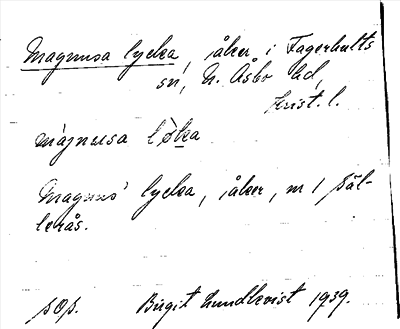 Magnusa lycka, åker i Fagerhults
sn, N. Åsbo hd,
Krist. l.
màjnusa løka
Magnus' lycka, åker, nr 1 Säl-
lerås.
pos. Birgit Lundkvist 1939.